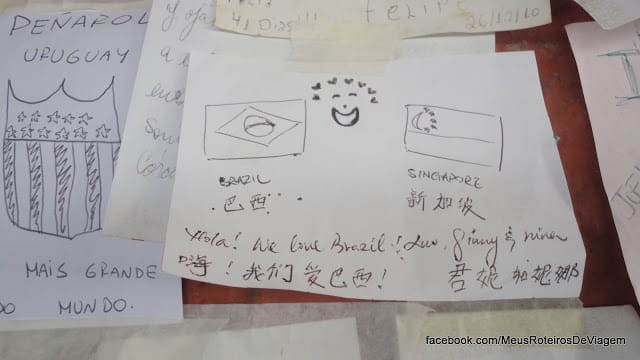 PEÑAROL
URUGUAY
MAIS GRANDE
DO MUNDO.
41 Dias!!!
FELIPE
26/12/10
BRAZIL
巴西
SINGAPORE
新加坡
Hola! We love Brazil! Luv, Ginny & nina
嗨！我们爱巴西！ 君妮 和妮娜
facebook.com/MeusRoteirosDeViagem